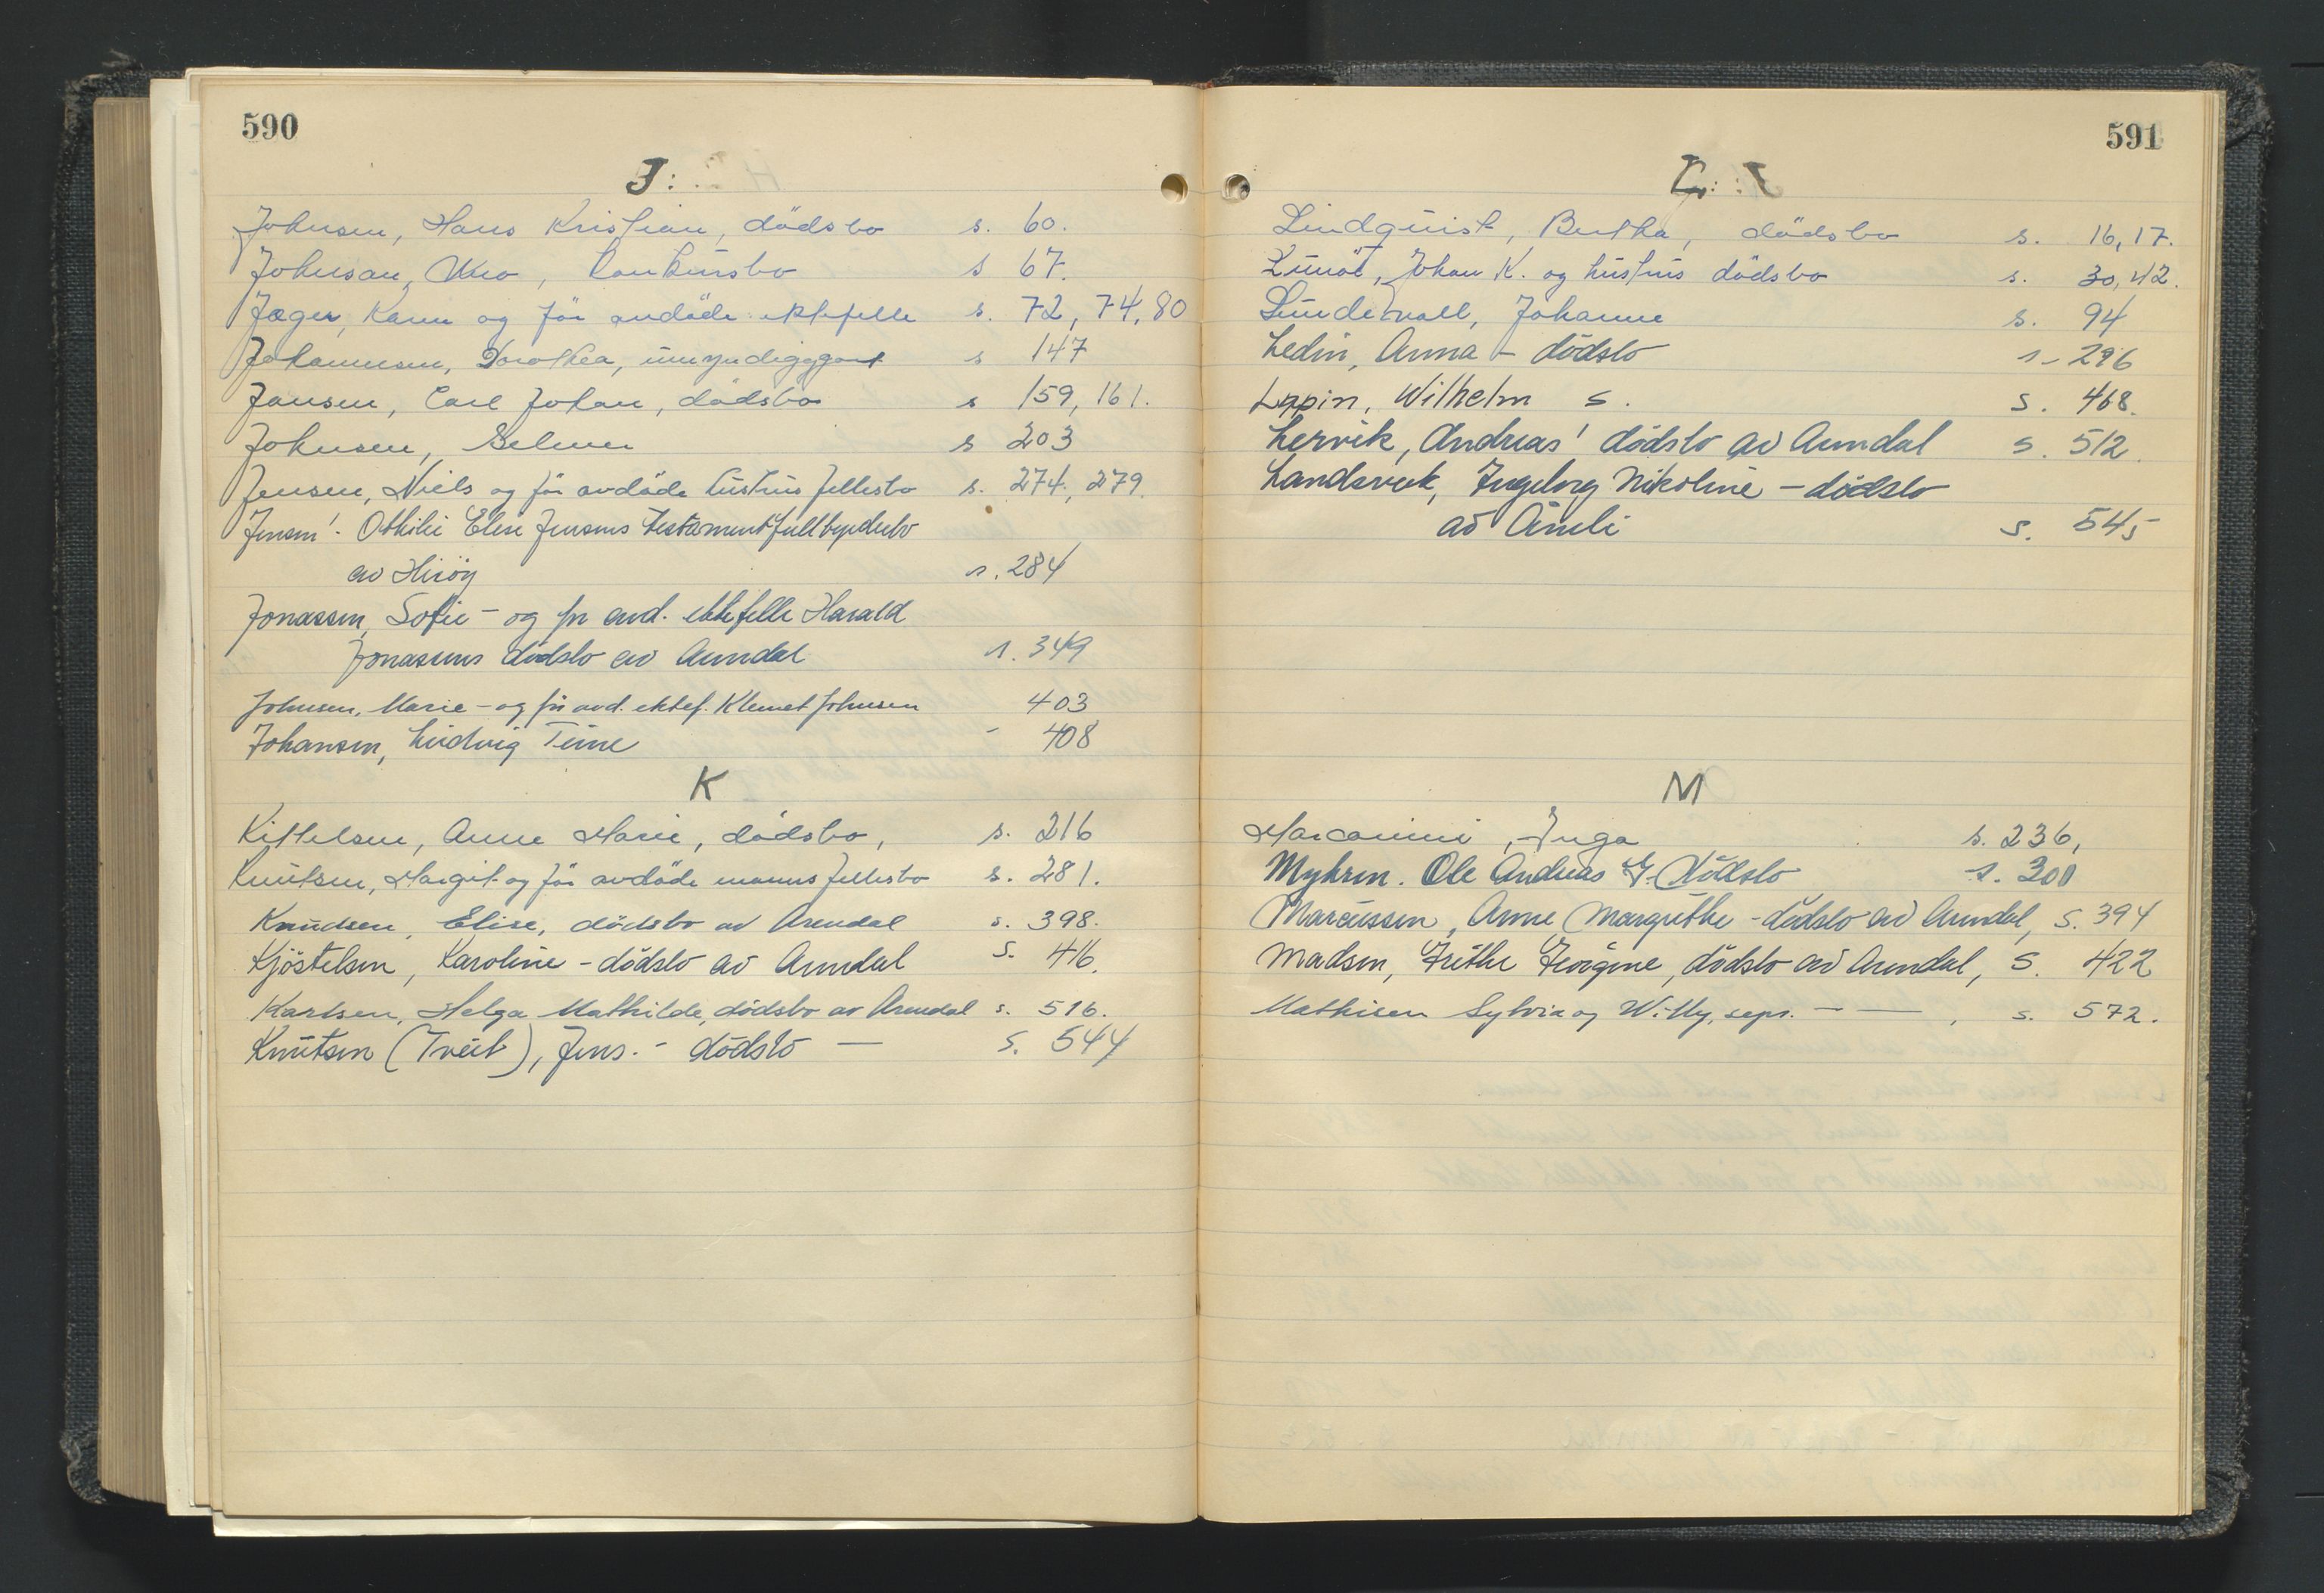 590
J:
Johnsen, Hans Kristian, dødsbo s. 60.
Johnsen, Uno, konkursbo s 67.
Jæger, Karen og før avdøde ektefelle s. 72, 74, 80
Johannesen, Dorothea, umyndiggjort s 147
Jansen, Carl Johan, dødsbo s 159, 161.
Johnsen, Selmer s 203
Jensen, Niels og før avdøde hustrus fellesbo s. 274, 279.
Jensen: Othilie Elise Jensens testamentfullbyrderbo
av Hisøy s. 284
Jonassen, Sofie - og før avd. ektefelle Harald
Jonassens dødsbo av Arendal s. 349
Johnsen, Marie - og før avd. ektef. Klemet Johnsen 403
Johansen, Ludvig Teine - 408
K
Kittelsen, Anne Marie, dødsbo, s. 216
Knutsen, Margit og før avdøde manns fellesbo s. 281.
Knudsen, Elise, dødsbo av Arendal s. 398.
Kjöstelsen, Karoline - dödsbo av Arendal s. 416.
Karlsen, Helga Mathilde, dödsbo av Arendal s. 516.
Knutsen (Tveit), Jens. - dödsbo — s. 544
591
L:
Lindquist, Bertha, dødsbo s. 16, 17.
Johan K. og hustrus dødsbo s. 30, 42.
Lundevall, Johanne s. 94
Ledin, Anna - dödsbo s - 296
Lapin, Wilhelm s. s. 468.
Lervik, Andreas' dödsbo av Arendal s. 512.
Landsverk, Ingeborg Nikoline - dödsbo
av Åmli s. 545
M
Marconini, Inga s. 236,
Myhren. Ole Andreas G. Dödsbo s. 300
Marcussen, Anne Margrethe - dödsbo av Arendal, s. 394
Madsen, Grethe Georgine, dödsbo av Arendal, s. 422
Mathisen Sylvia og Willy, sepr. - — , s. 572.